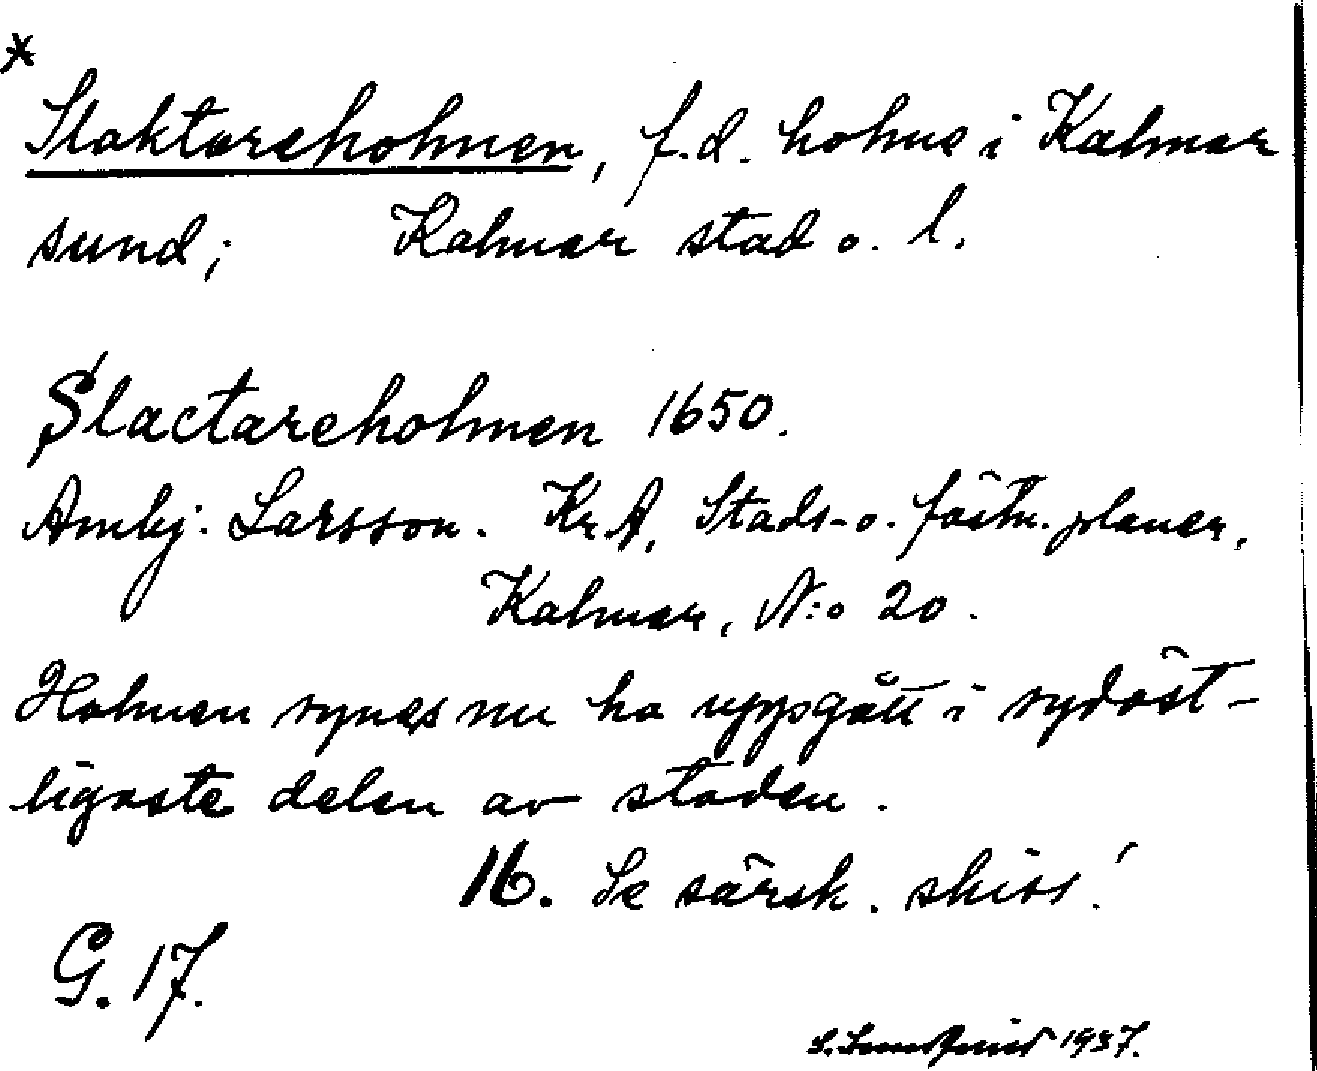 *
Slaktareholmen, f.d. holme i Kalmar
sund; Kalmar stad o. l.
Slactareholmen 1650.
Ambj. Larsson. Kr.A, Stads- o. fästn. planer,
Kalmar, N:o 20.
Holmen synes nu ha uppgått i sydöst-
ligaste delen av staden.
16. Se särsk. skiss!
G. 17.
1937.